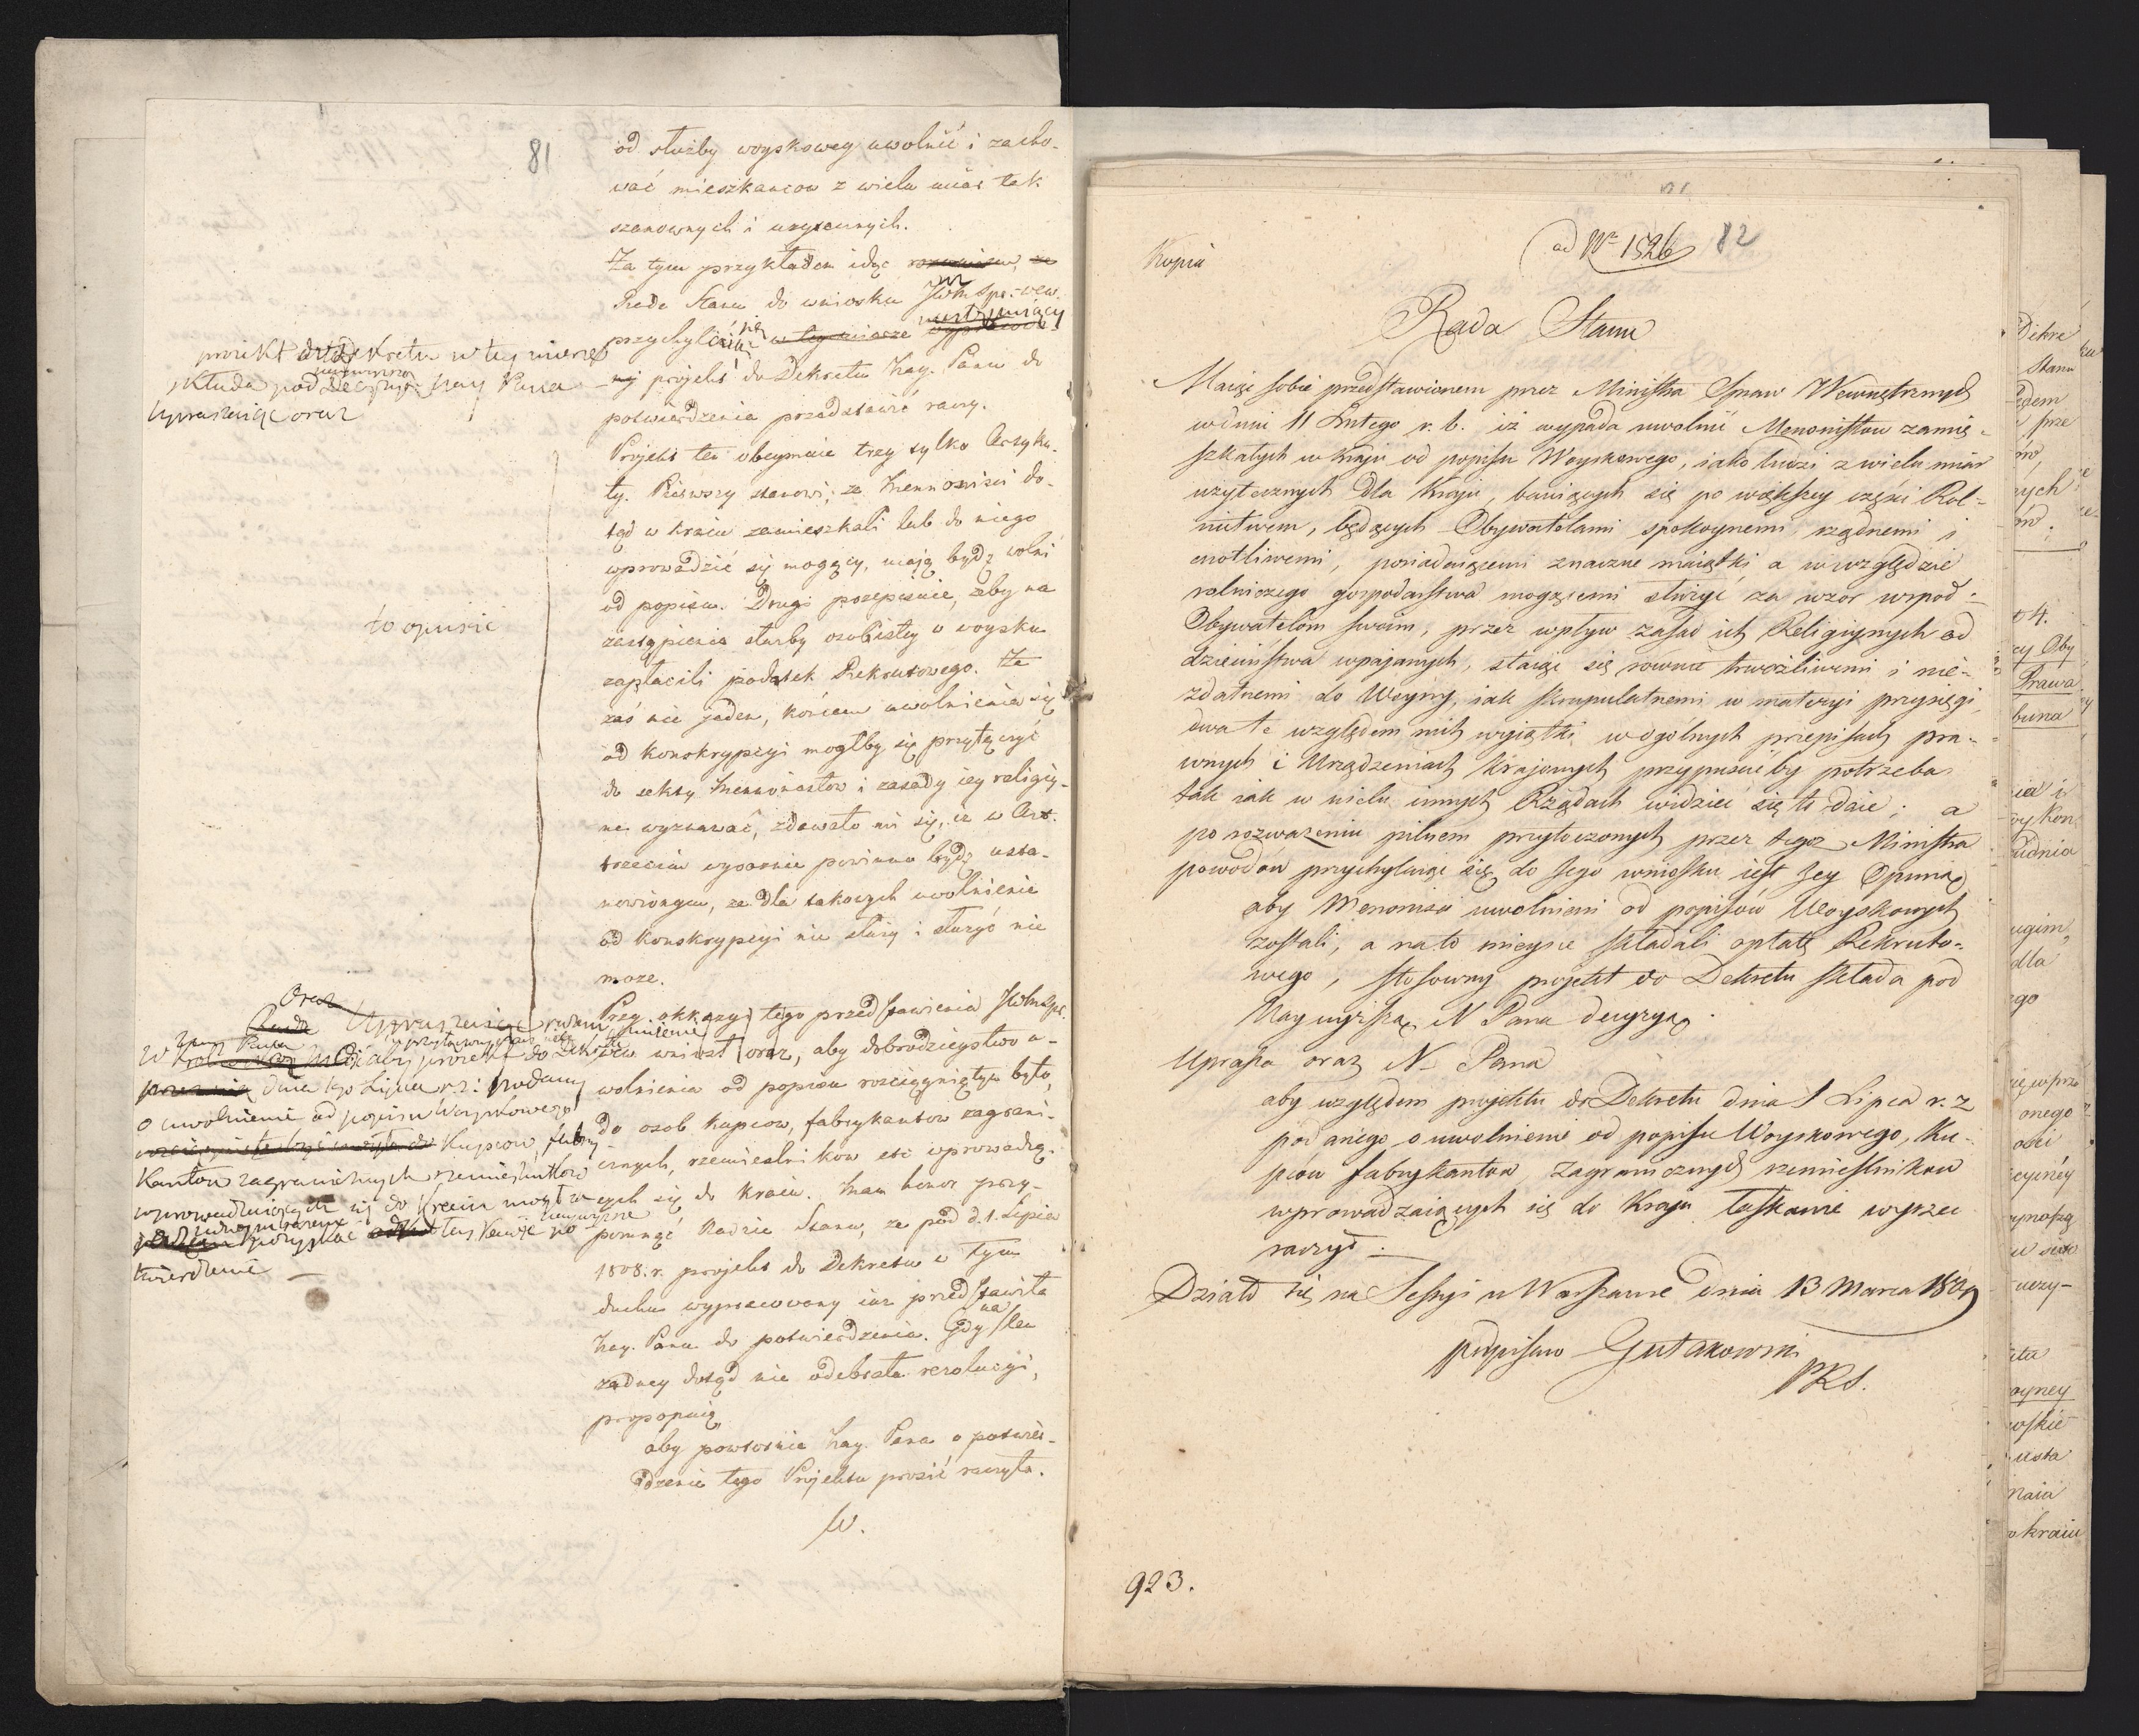 81
od służby woyskowey uwolnić i zacho-
wać mieszkancow z wielu miar tak
szanownych i uzytecznych.
Za tym przykładem idąc
Rada Stanu do wniosku JW M Spr: wew.
przychylić się w tey mierze
projekt do Dekretu Nay. Panu do
potwierdzenia przedstawić raczy.
Projekt ten obeymuie trzy tylko Artyku-
ły. Pierwszy stanowi; ze Mennonisci do-
tąd w kraiu zamieszkali lub do niego
wprowadzić się mogący, mają bydź wolni
od popisu. Drugi przepisuie, żeby na
zastąpienie służby osobistey w woysku
zapłacili podatek Rekrutowego. Ze
zaś nie jeden, końcem uwolnienia się
od konskrypcyi mogłby się przyłączyć
do sekty Mennonistow i zasady iey religiy-
ne wyznawać, zdawało mi się, ze w Art.
trzecim wyraznie powinno bydź usta-
nowionym, ze dla takowych uwolnienie
od konskrypcyi nie służy i służyć nie
moze.
Przy okkazyi tego przedstawienia JWM Spr.
wew wniosł oraz, aby dobrodzieystwo u-
wolnienia od popisu rozciągniętym było,
do osob kupcow, fabrykantow zagrani-
cznych, rzemieslnikow etc wprowadza-
cych się do kraiu. Mam honor przy-
pomnąć Radzie Stanu, ze pod d. 1. Lipca
1808. r. projekt do Dekretu w tym
duchu wypracowany iuz przedstawiła
Nay. Panu do potwierdzenia. Gdy na ten
zadney dotąd nie odebrała rezolucyi,
proponuię
aby powtornie Nay. Pana o potwier-
dzenie tego Projektu prosić raczyła.
W.
projekt do dekretu w tey mierze
składa pod Decyzyą Nay Pana
Upraszaiąc oraz
to opuścić
Oraz
Rada Upraszaiąc
aby projekt do Dekretu
dnia 1go Lipca r: z: podany
o uwolnienie od popisu Woyskowego
Kupcow, fabry-
kantow zagranicznych rzemieslnikow
wprowadzaiących się do Kraiu mogł
pozyskać po-
twierdzenie —
Kopia
ad Nr 1526 82
Rada Stanu
Maiąc sobie przedstawionem przez Ministra Spraw Wewnętrznych
w dniu 11 Lutego r. b. iż wypada uwolnić Menonistow zamię-
szkałych w Kraju od popisu Woyskowego, iako ludzi z wielu miar
użytecznych dla Kraju, bawiących się po większey części Rol-
nictwem, będących Obywatelami spokoynemi rządnemi i
cnotliwemi, posiadaiącemi znaczne maiątki, a w względzie
rolniczego gospodarstwa mogącemi służyć za wzór wspoł-
Obywatelom swoim, przez wpływ zasad ich Religiynych od
dzieciństwa wpajanych, staiąc się rownie trwożliwemi i nie-
zdatnemi do Woyny, iak skrupulatnemi w materyi przysięgi,
dwa te względem nich wyiątki w ogólnych przepisach pra-
wnych i Urządzeniach Krajowych przypuscićby potrzeba
tak iak w wielu innych Rządach widzieć się to daie; a
po rozważeniu pilnem przytoczonych przez tegoz Ministra
powodów przychylaiąc się do Jego wniosku iest Jey Opinią
aby Menonisci uwolnieni od popisow Woyskowych
zostali, a na to mieysce składali opłatę Rekruto-
wego, stosowny projekt do Dekretu składa pod
Naywyższą N Pana decyzyą.
Uprasza oraz N. Pana
aby względem projektu do Dekretu dnia 1 Lipca r. z
podanego o uwolnienie od popisu Woyskowego, Ku-
pcow fabrykantow Zagranicznych rzemieslnikow
wprowadzaiących się do Kraju łaskawie wyrzec
raczył.
Działo się na Sessyi w Warszawie dnia 13 Marca 1809
podpisano Gutakowski
PRS.
923.